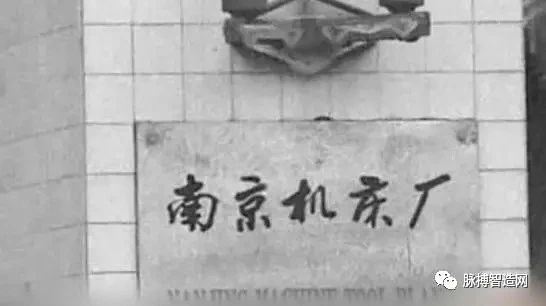 南京机床厂
NANJING MACHINE TOOL PLANT
脉搏智造网